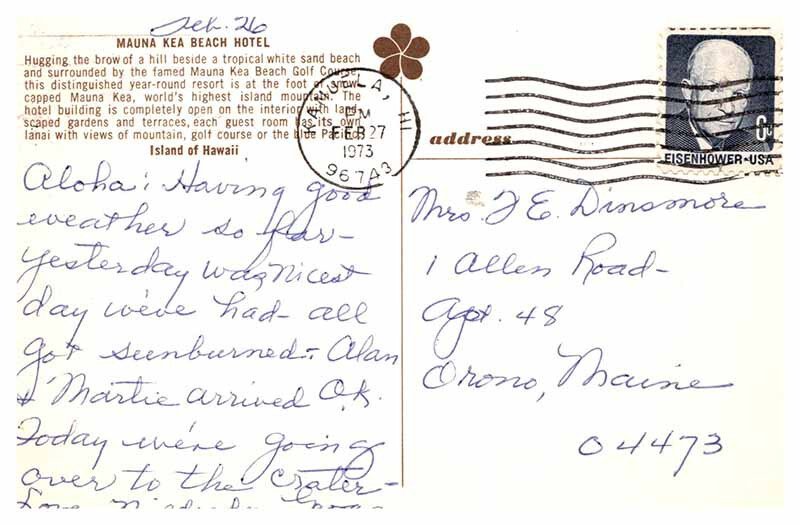 Feb. 26
MAUNA KEA BEACH HOTEL
Hugging the brow of a hill beside a tropical white sand beach
and surrounded by the famed Mauna Kea Beach Golf Course,
this distinguished year-round resort is at the foot of snow
capped Mauna Kea, world's highest island mountain. The
hotel building is completely open on the interior with land-
scaped gardens and terraces, each guest room has its own
lanai with views of mountain, golf course or the blue Pacific.
Island of Hawaii
KAMUELA, HI
PM
FEB 27
1973
96743
address
6c
EISENHOWER·USA
Aloha: Having good
weather so far-
yesterday was nicest
day we've had- all
got sunburned- Alan
& Martie arrived O.K.
Today we're going
over to the crater-
Love
Mrs F E. Dinsmore
1 Allen Road-
Apt. 48
Orono, Maine
04473